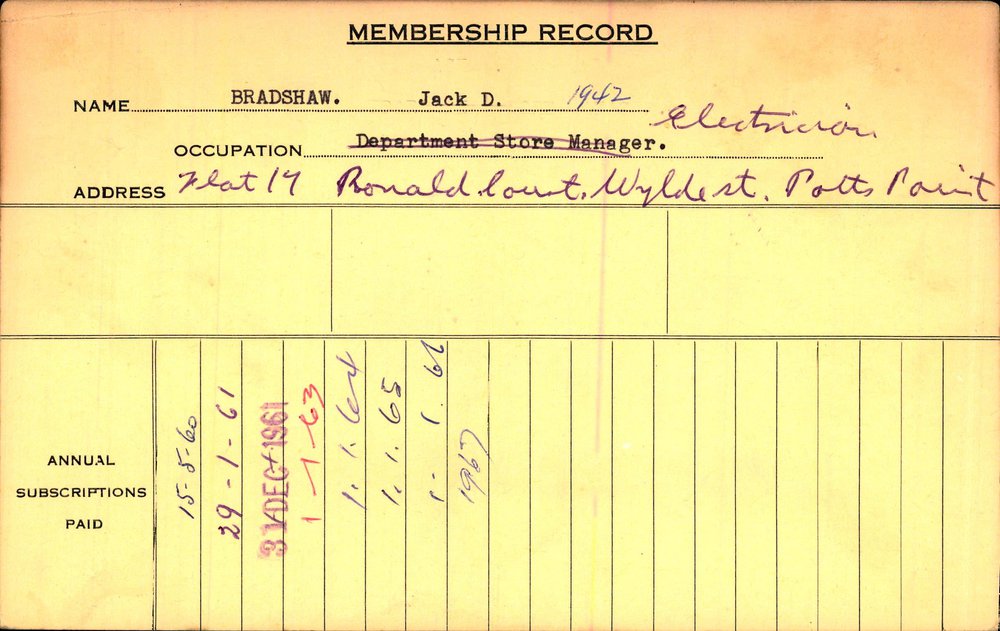 MEMBERSHIP RECORD
NAME BRADSHAW. Jack D. 1942
Electrician
OCCUPATION Department Store Manager.
ADDRESS Flat 17 Ronald Court. Wylde st. Potts Point
ANNUAL
SUBSCRIPTIONS
PAID
15-5-60
29-1-61
31 DEC 1961
1-1-63
1.1.64
1.1.65
1-1.66
1967